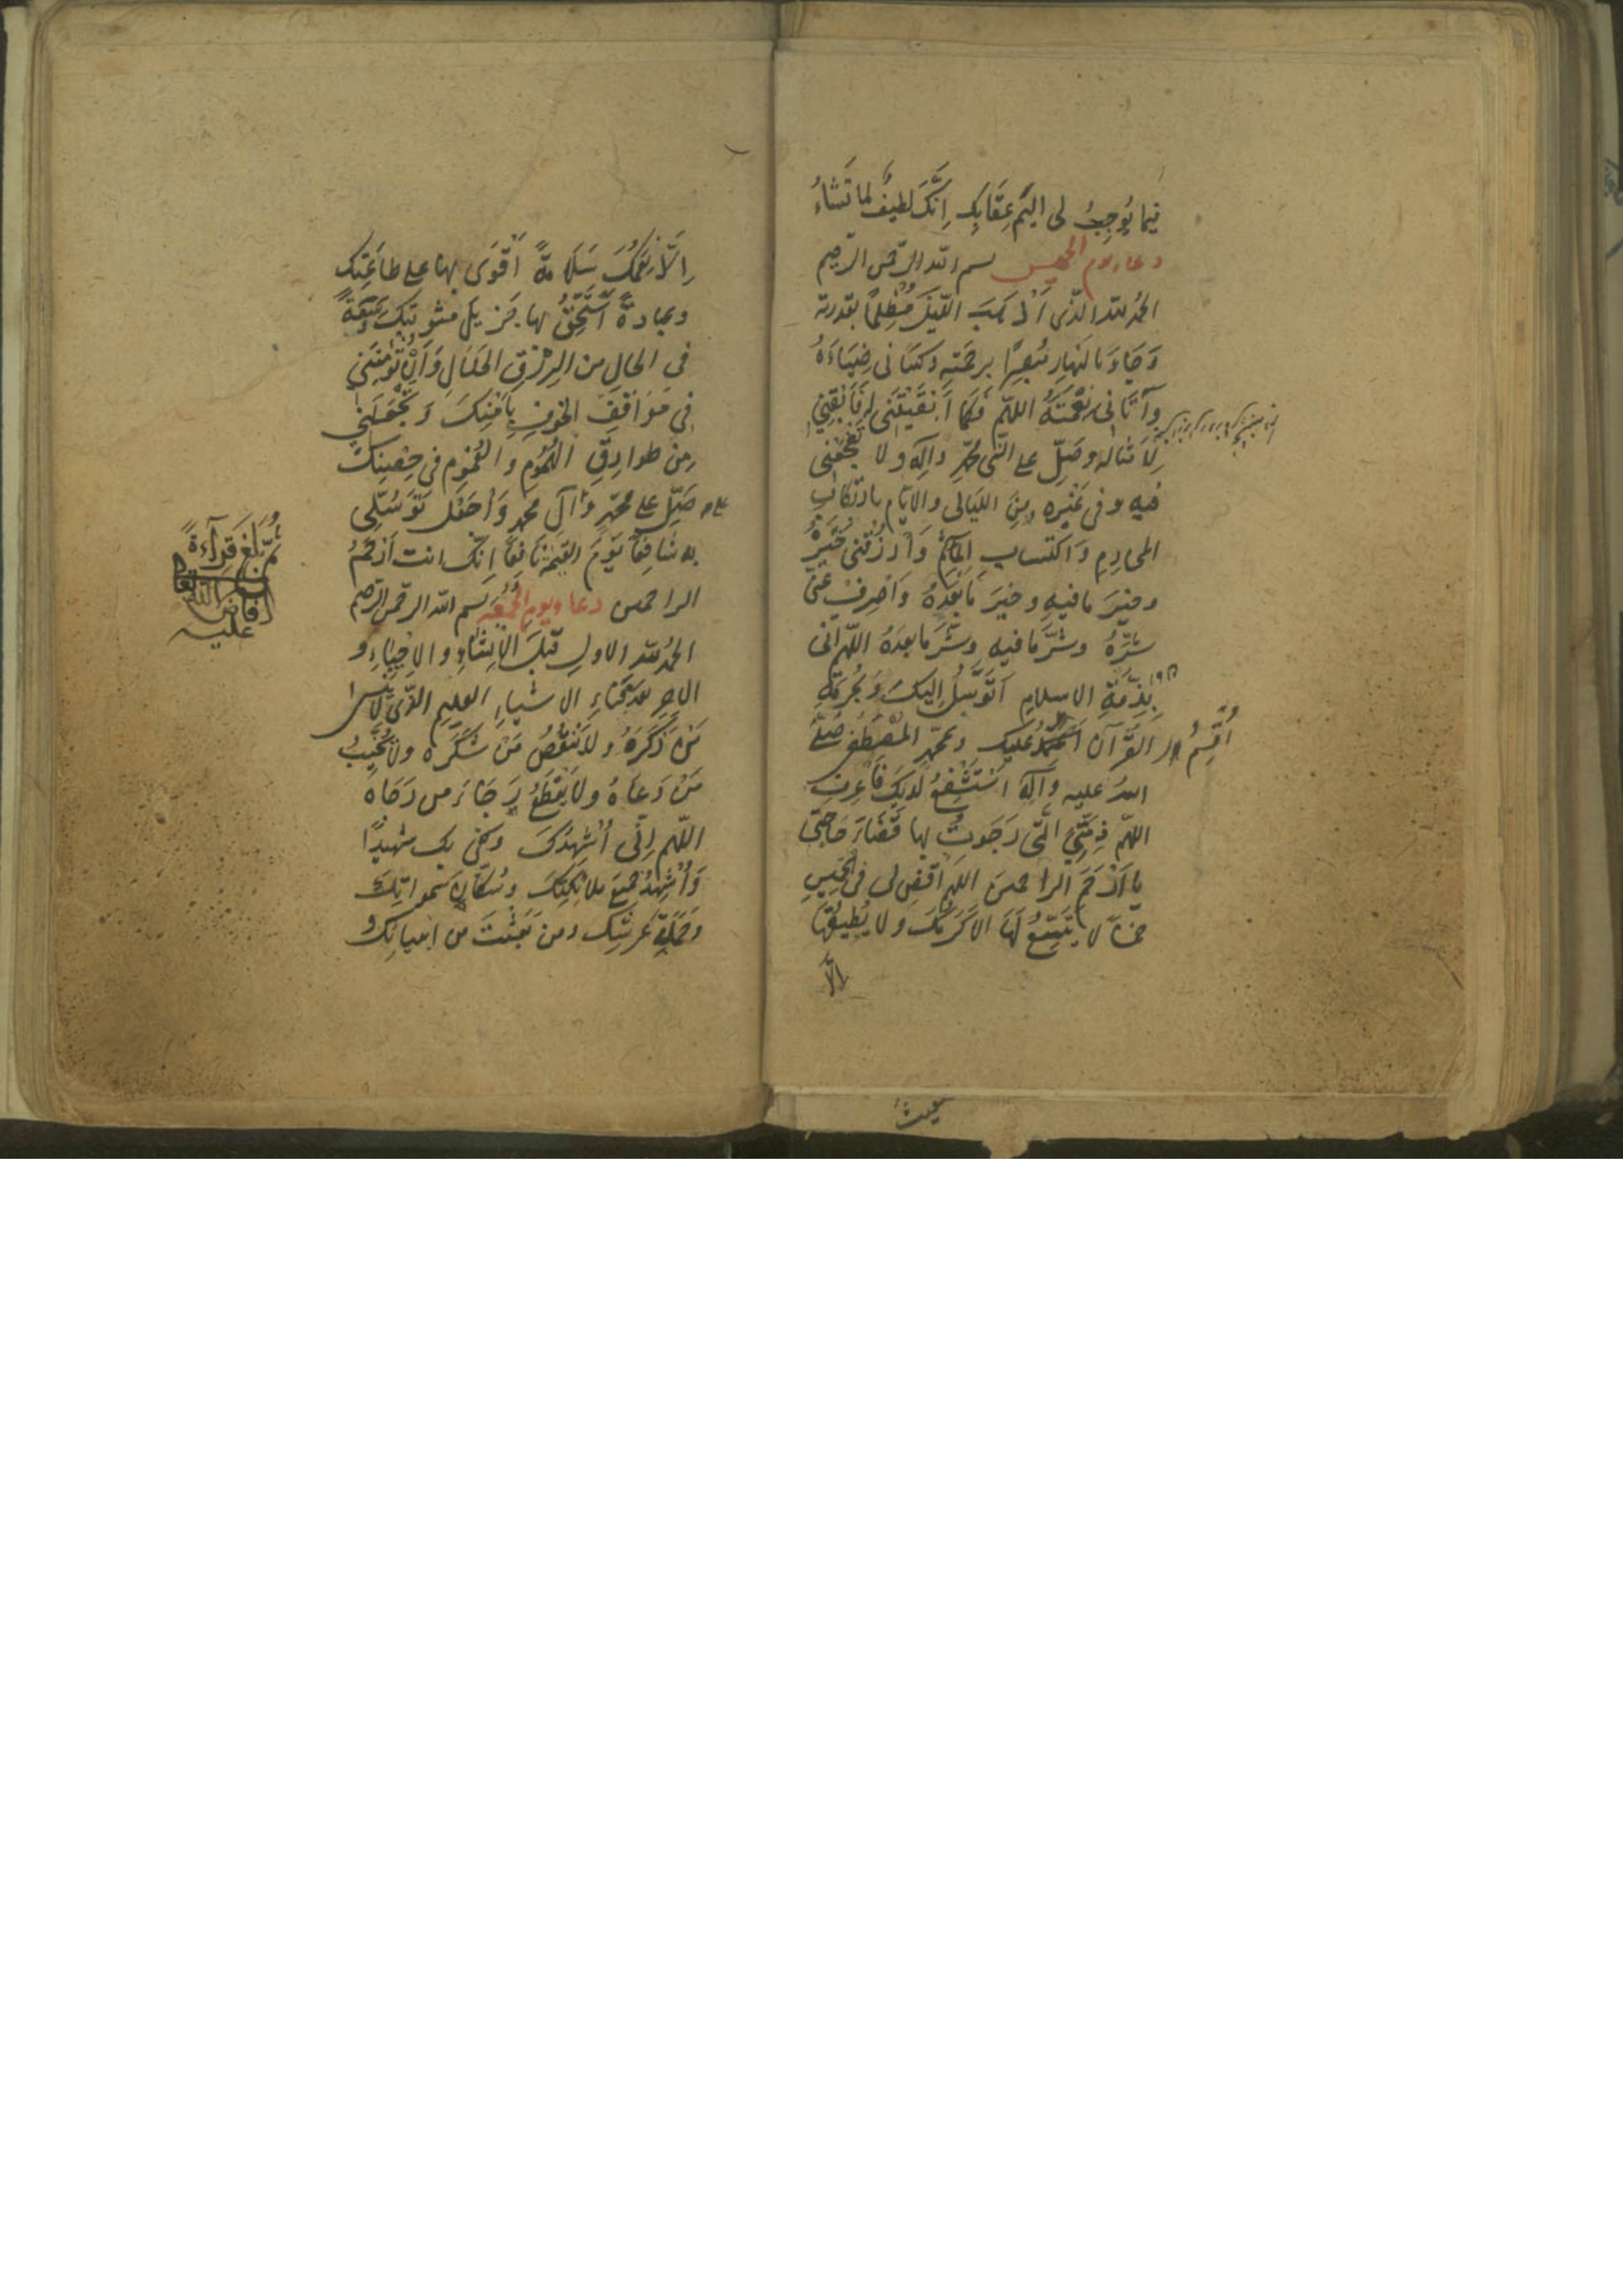 فيما يُوجِبُ لى اليمَ عِقَابِك اِنَّكَ لَطيفٌ لما تَشَاءُ
دعاء يوم الخميس بسم الله الرحمن الرحيم
الحمدُ لله الذى اَذْهَبَ اللّيلَ مُظلِمًا بقدرته
وَجَاءَ بالنهارِ مُبصِرًا برحمته وكسانى ضِيَاءَهُ
وآتانى نِعْمَتَهُ اللهمّ فكما اَبْقَيْتَنى له فَاَبْقِنِى
لِاَمثاله وصَلِّ على النبى محمّدٍ وآلِه ولا تَفْجَعْنى
فيه وفى غَيْرِه مِنَ الليَالى والايّام بارتكابِ
المحارِمِ وَاكتسابِ المآثِمِ وَارْزُقنى خَيْرَهُ
وخيرَ ما فيهِ وخيرَ مَا بَعْدَهُ وَاصْرِفْ عَنّى
شَرَّهُ وشَرَّ مَا فيهِ وشَرَّ ما بعدَهُ اللهمّ انى
بِذِمَّةِ الاسلامِ اَتَوَسَّلُ اِليكَ وَبِحُرمَةِ
القرآن اَعْتَمِدُ عليك وبمحمّدٍ المُصْطَفى صَلّى
اللهُ عليه وآلِه اَسْتَشْفِعُ لديكَ فَاعْرِفِ
اللهمّ ذِمَّتِىَ الّتى رَجَوتُ بها قَضَاءَ حَاجَتى
يا اَرْحَمَ الراحمينَ اللهمّ اقضِ لى فى الخميسِ
خمسًا لا يَتَّسِعُ لَهَا الّا كَرَمُكَ ولا يُطيقُهَا
اِلّا
اُقْسِمُ
اِلّا نِعَمُكَ سَلَامَةً اَقْوَى بها على طاعَتِك
وعبادةً اَسْتَحِقُّ بها جَزيلَ مثوبَتِكَ وسَعَةً
فى الحالِ من الرِزْقِ الحَلَالِ وَاَنْ تُؤْمِنَنِى
فى مَوَاقِفِ الخوفِ بِاَمْنِكَ وَتَجْعَلَنِى
مِن طوارِقِ الهُمُومِ والغُمُومِ فى حِصْنِكَ
صَلِّ على محمّدٍ وآلِ محمدٍ وَاجعَل تَوَسُّلِى
به شَافِعًا يَوْمَ القيمة نَافِعًا اِنّكَ انت اَرْحَمُ
الراحمين دعاء يوم الجمعة بسم الله الرحمن الرحيم
الحمدُ لله الاول قبلَ الاِنشَاءِ والاِحياءِ و
الآخِرِ بعدَ فَنَاءِ الاشياءِ العليم الّذى لَا يَنْسى
مَنْ ذَكَرَهُ ولا يَنْقُصُ مَنْ شَكَرَهُ ولا يُخَيِّبُ
مَنْ دَعَاهُ ولا يَقطَعُ رَجَاءَ مَن رَجَاهُ
اللهمّ اِنّى اُشْهِدُكَ وكفى بك شهيدًا
وَاُشْهِدُ جميعَ ملائِكَتِكَ وسُكّانَ سَمواتِكَ
وحَمَلَةَ عَرشِك ومن بَعَثْتَ من انبيائِكَ و
ثمّ بَلَغَ قِرآءةً
افاض الله
عليه